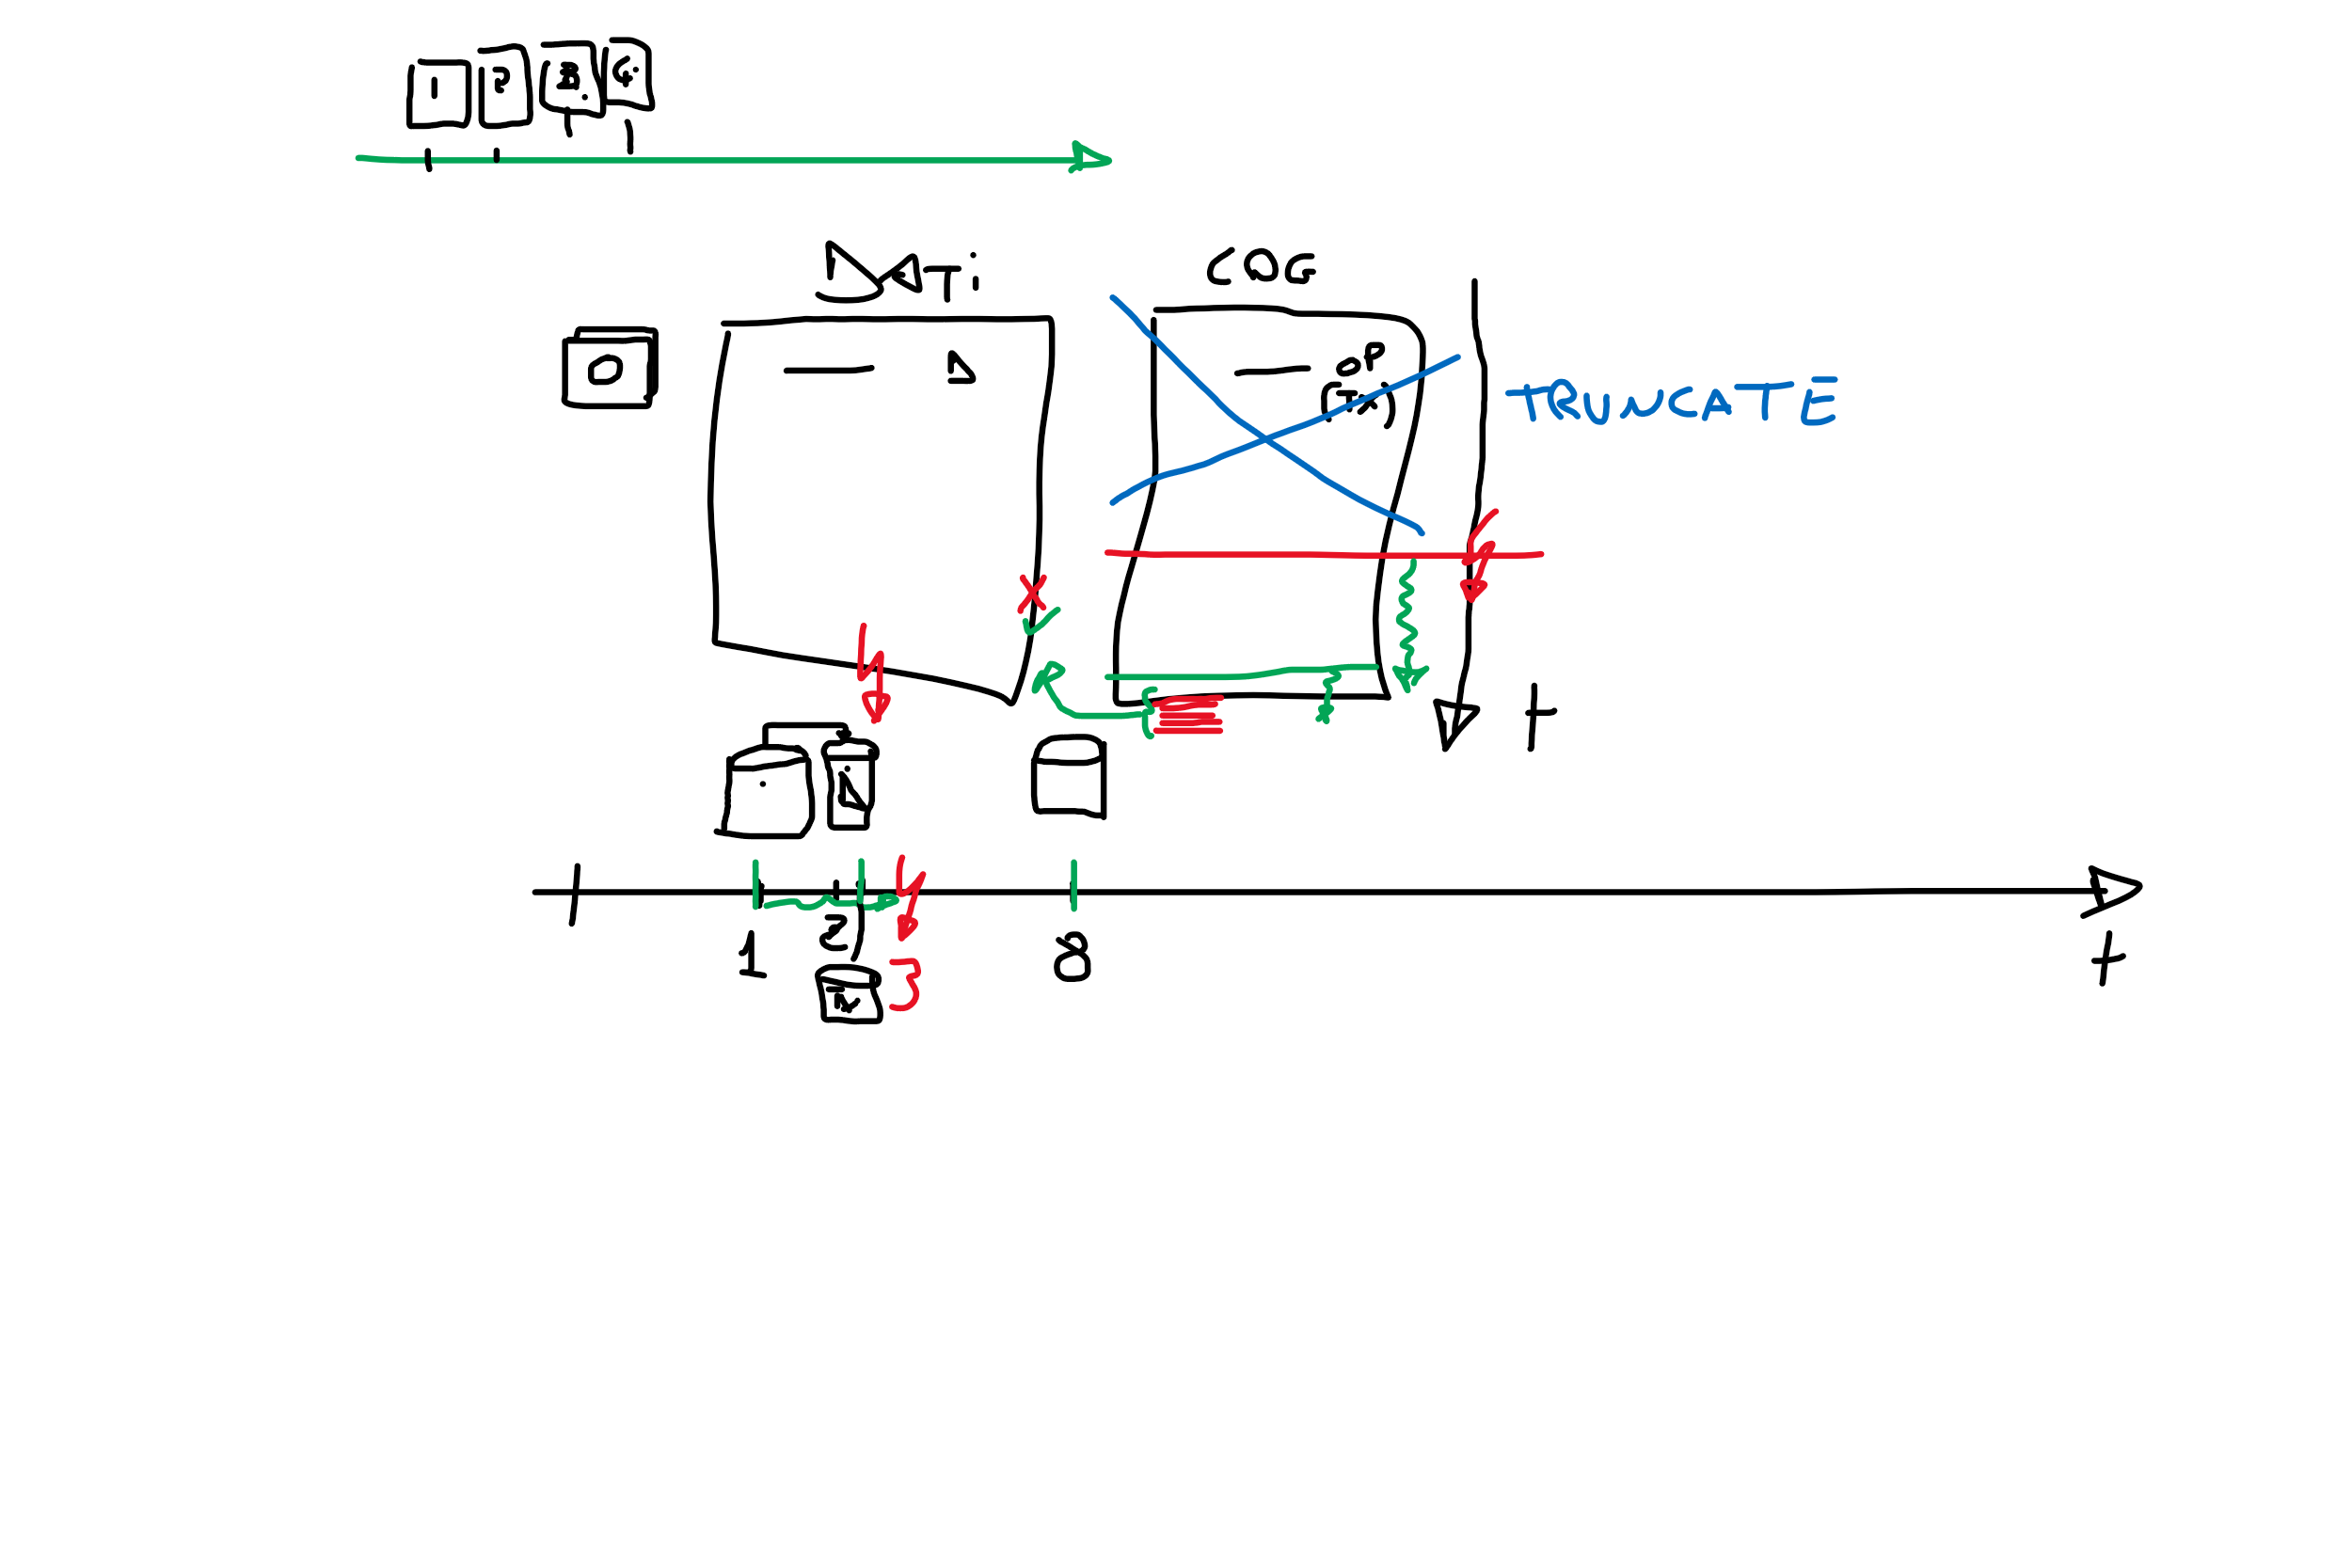 1 2 3 4
DATI LOG
D
OP
(TX)
TRUNCATE
t
1 2 8 t
TX 3